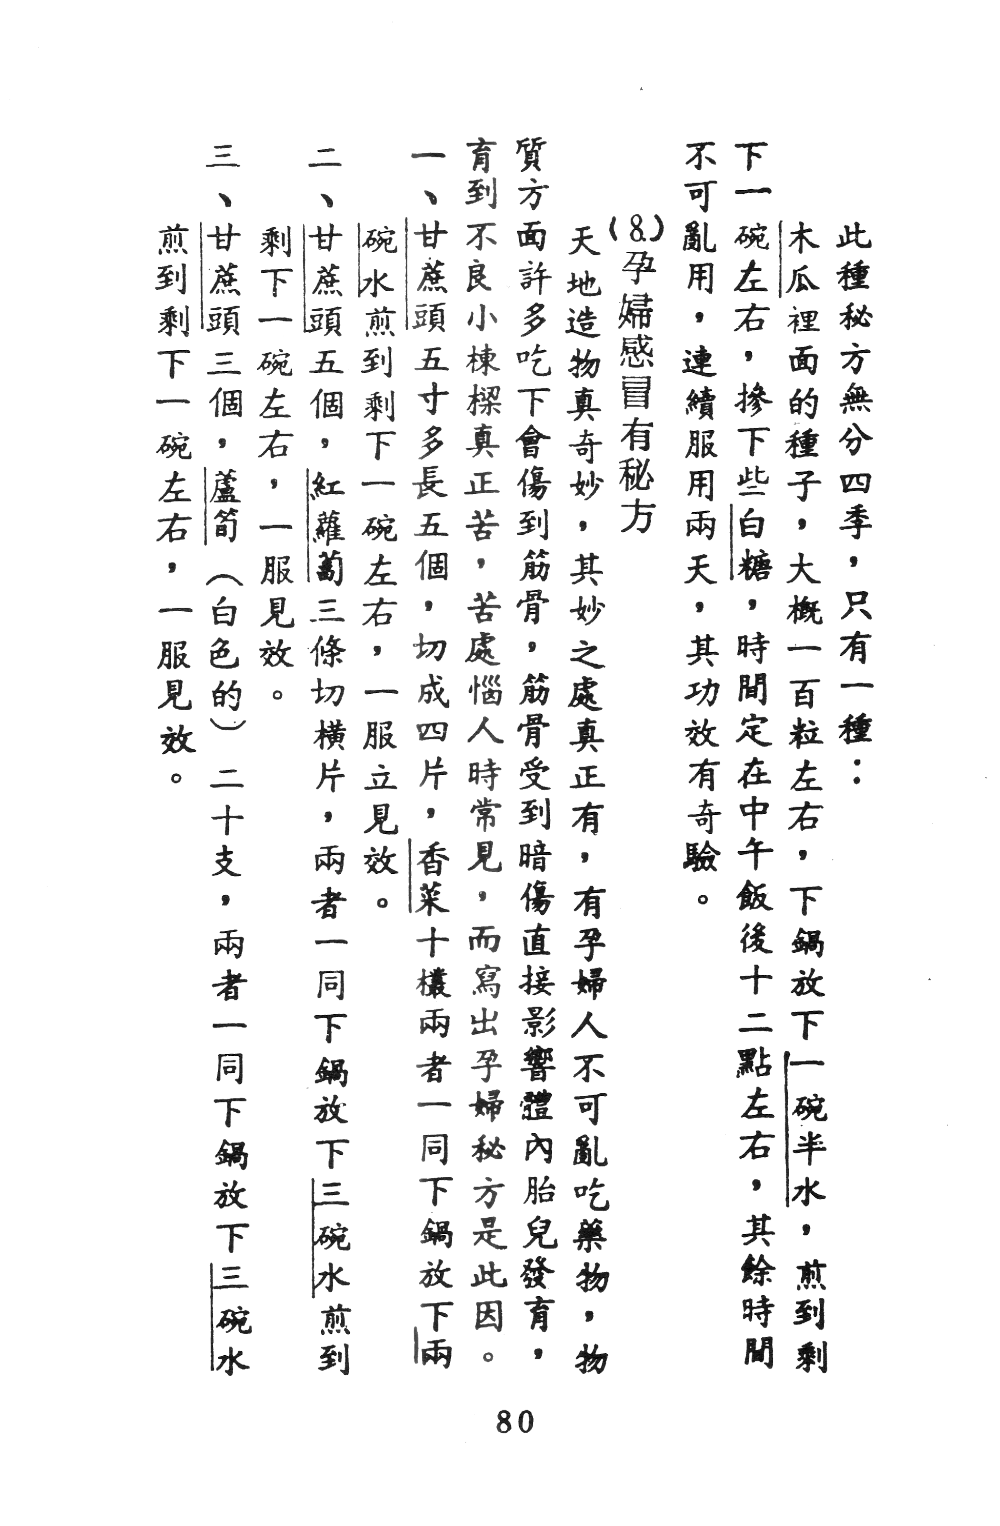 此種秘方無分四季，只有一種：
木瓜裡面的種子，大概一百粒左右，下鍋放下一碗半水，煎到剩
下一碗左右，摻下些白糖，時間定在中午飯後十二點左右，其餘時間
不可亂用，連續服用兩天，其功效有奇驗。
(8.)孕婦感冒有秘方
天地造物真奇妙，其妙之處真正有，有孕婦人不可亂吃藥物，物
質方面許多吃下會傷到筋骨，筋骨受到暗傷直接影響體內胎兒發育，
育到不良小棟樑真正苦，苦處惱人時常見，而寫出孕婦秘方是此因。
一、甘蔗頭五寸多長五個，切成四片，香菜十欉兩者一同下鍋放下兩
碗水煎到剩下一碗左右，一服立見效。
二、甘蔗頭五個，紅蘿蔔三條切橫片，兩者一同下鍋放下三碗水煎到
剩下一碗左右，一服見效。
三、甘蔗頭三個，蘆筍（白色的）二十支，兩者一同下鍋放下三碗水
煎到剩下一碗左右，一服見效。
80